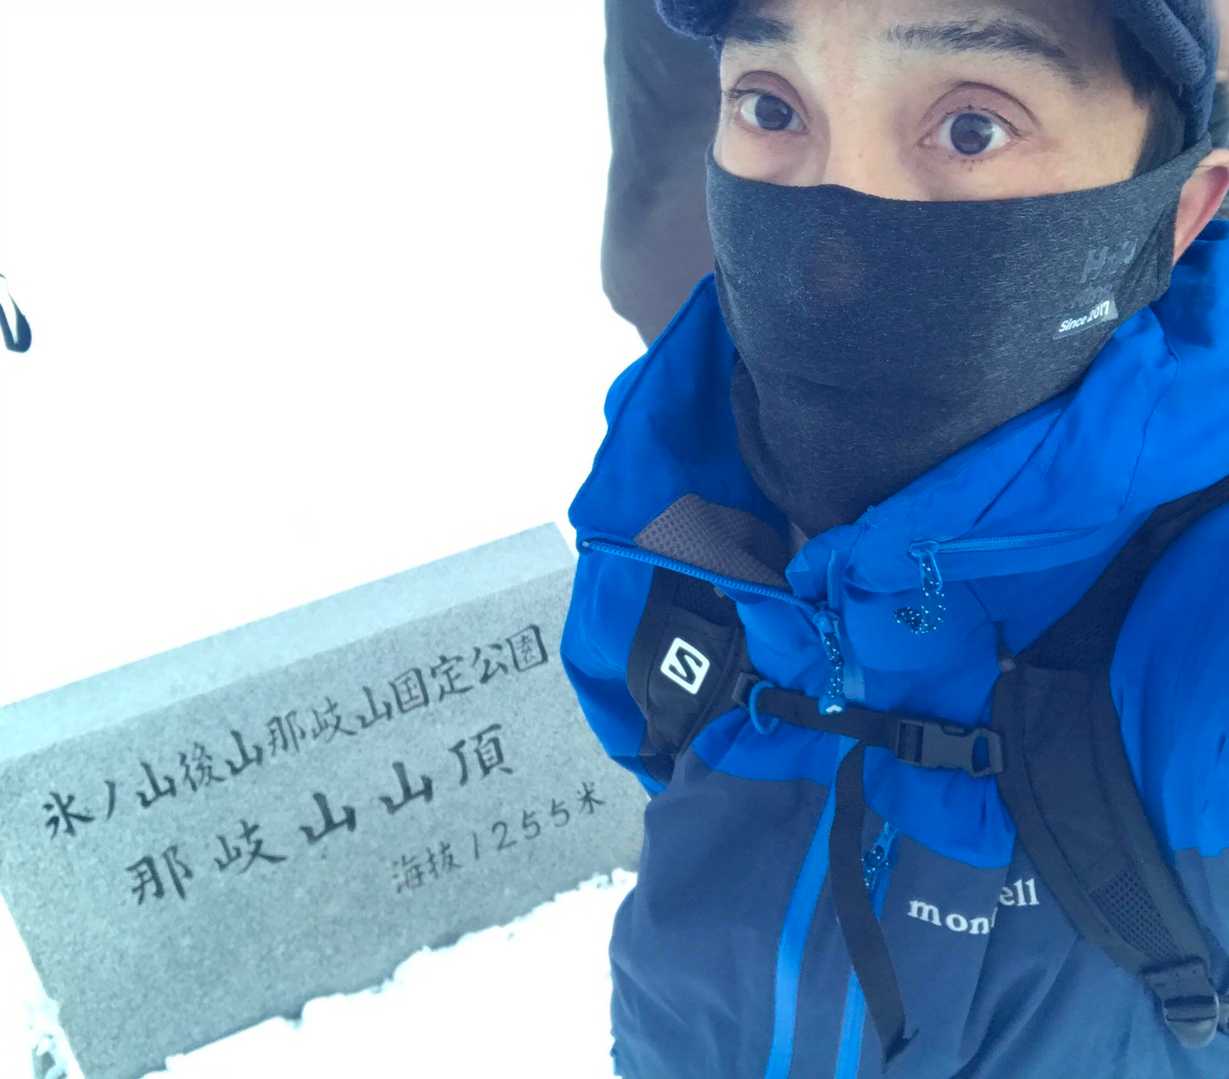 氷ノ山後山那岐山国定公園
那岐山山頂
海抜1255米
Since 2017
S